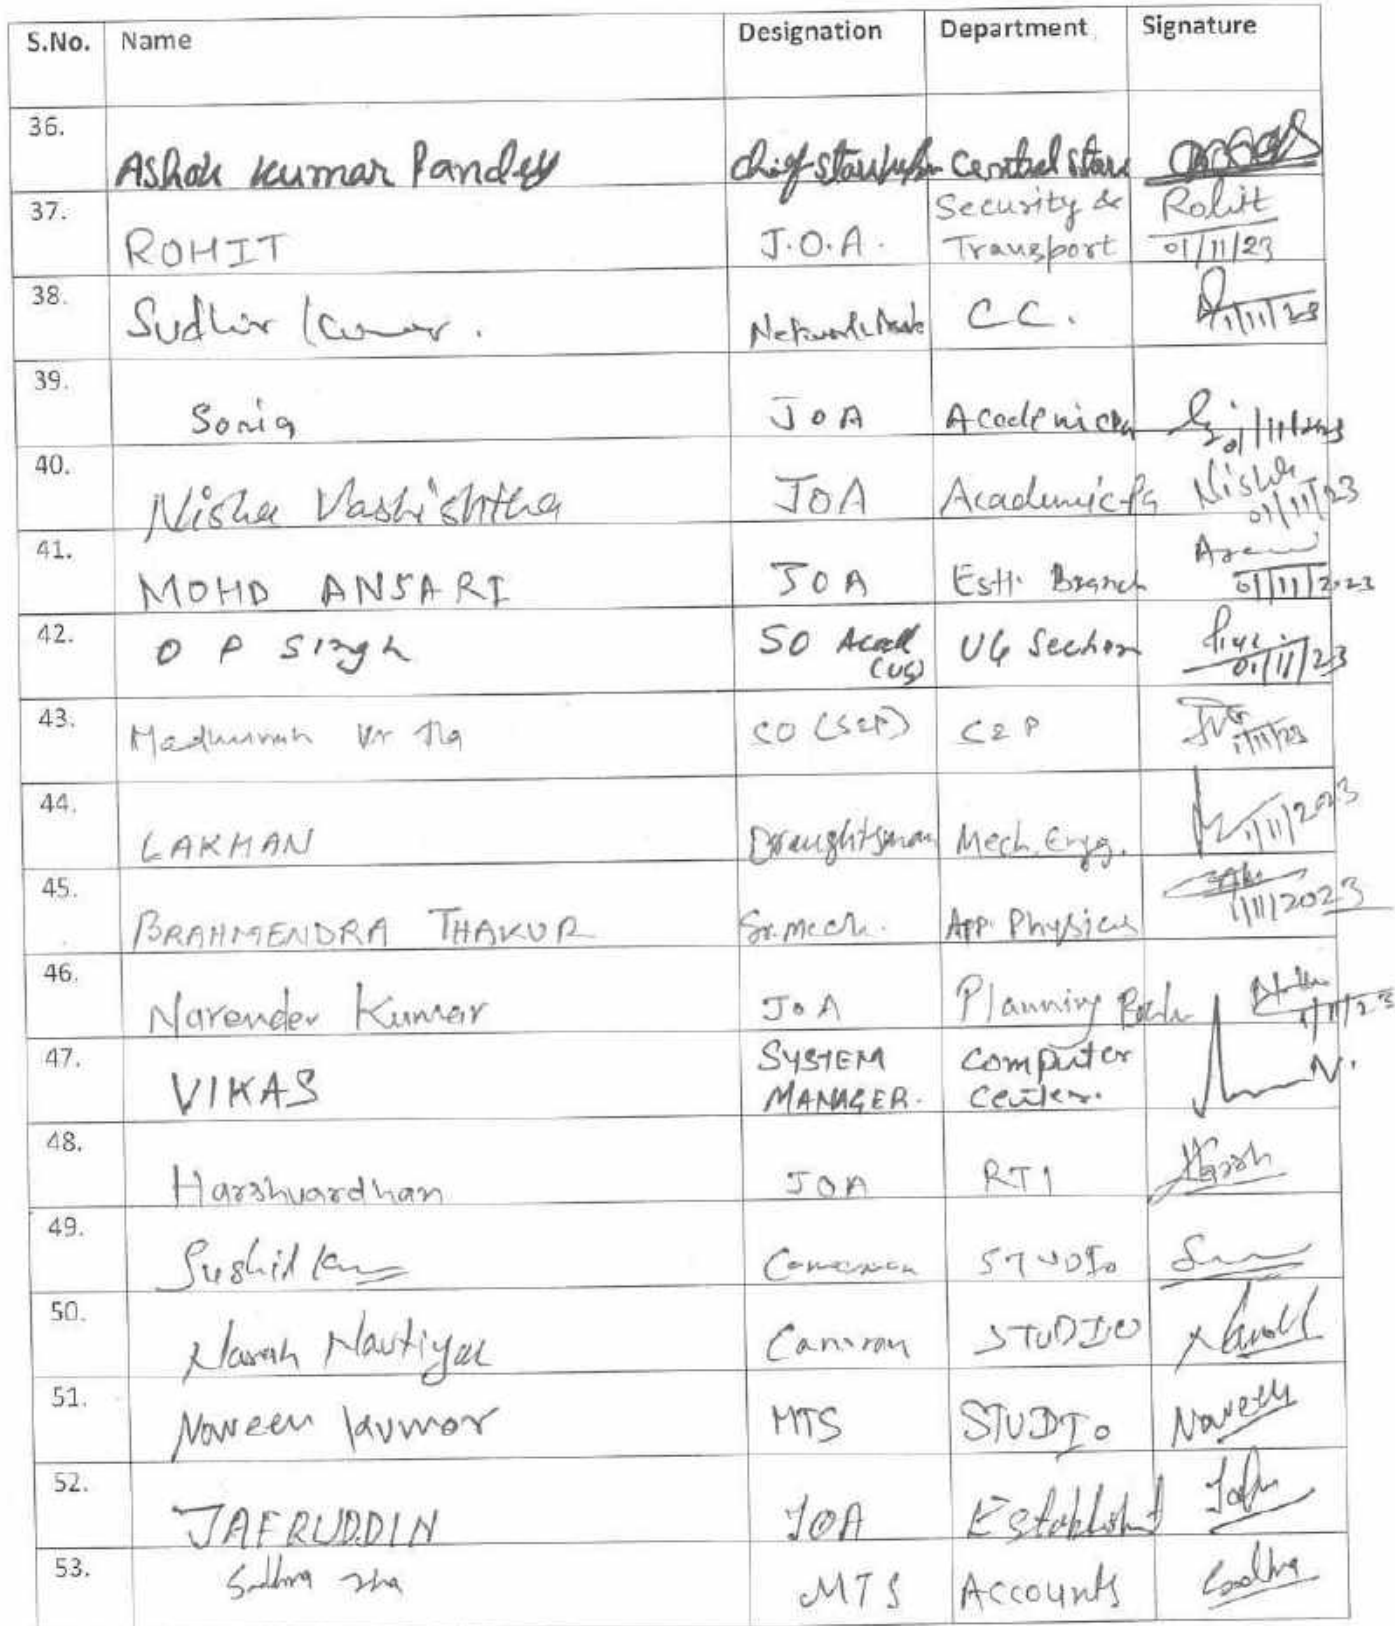 S.No. Name Designation Department Signature
36. Ashok Kumar Pandey Central Store
37. ROHIT J.O.A. Security & Transport Rohit 01/11/23
38. Sudhir Kumar. Network C.C. 1/11/23
39. Sonia JOA Academics 01/11/2023
40. Nisha Vashishtha JOA Academic-PG Nisha 01/11/23
41. MOHD ANSARI JOA Estt. Branch 01/11/2023
42. O P Singh SO Acad (UG) UG Section 01/11/23
43. Kr Jha CO 1/11/23
44. LAKHAN Draughtsman Mech. Engg. 1/11/2023
45. BRAHMENDRA THAKUR Sr. Mech. App. Physics 1/11/2023
46. Narender Kumar JOA Planning 1/11/23
47. VIKAS SYSTEM MANAGER. Computer Center. N.
48. Harshvardhan JOA RTI Harsh
49. Sushil Kumar Cameraman STUDIO
50. Nautiyal STUDIO
51. Naveen Kumar MTS STUDIO Naveen
52. JAFRUDDIN JOA
53. Sadhna Jha MTS Accounts Sadhna